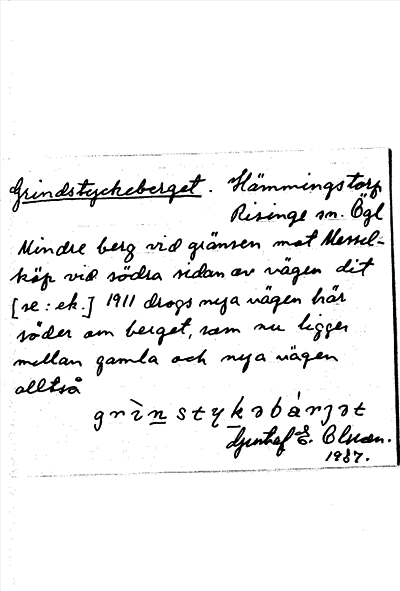 Grindstyckeberget. Hämmingstorp
Risinge sn. Ögl
Mindre berg vid gränsen mot Messel-
köp vid södra sidan av vägen dit
[se: ek.] 1911 drogs nya vägen här
söder om berget, som nu ligger
mellan gamla och nya vägen
alltså
grìnstykəbárȷət
Gustaf E. Olsson.
1937.